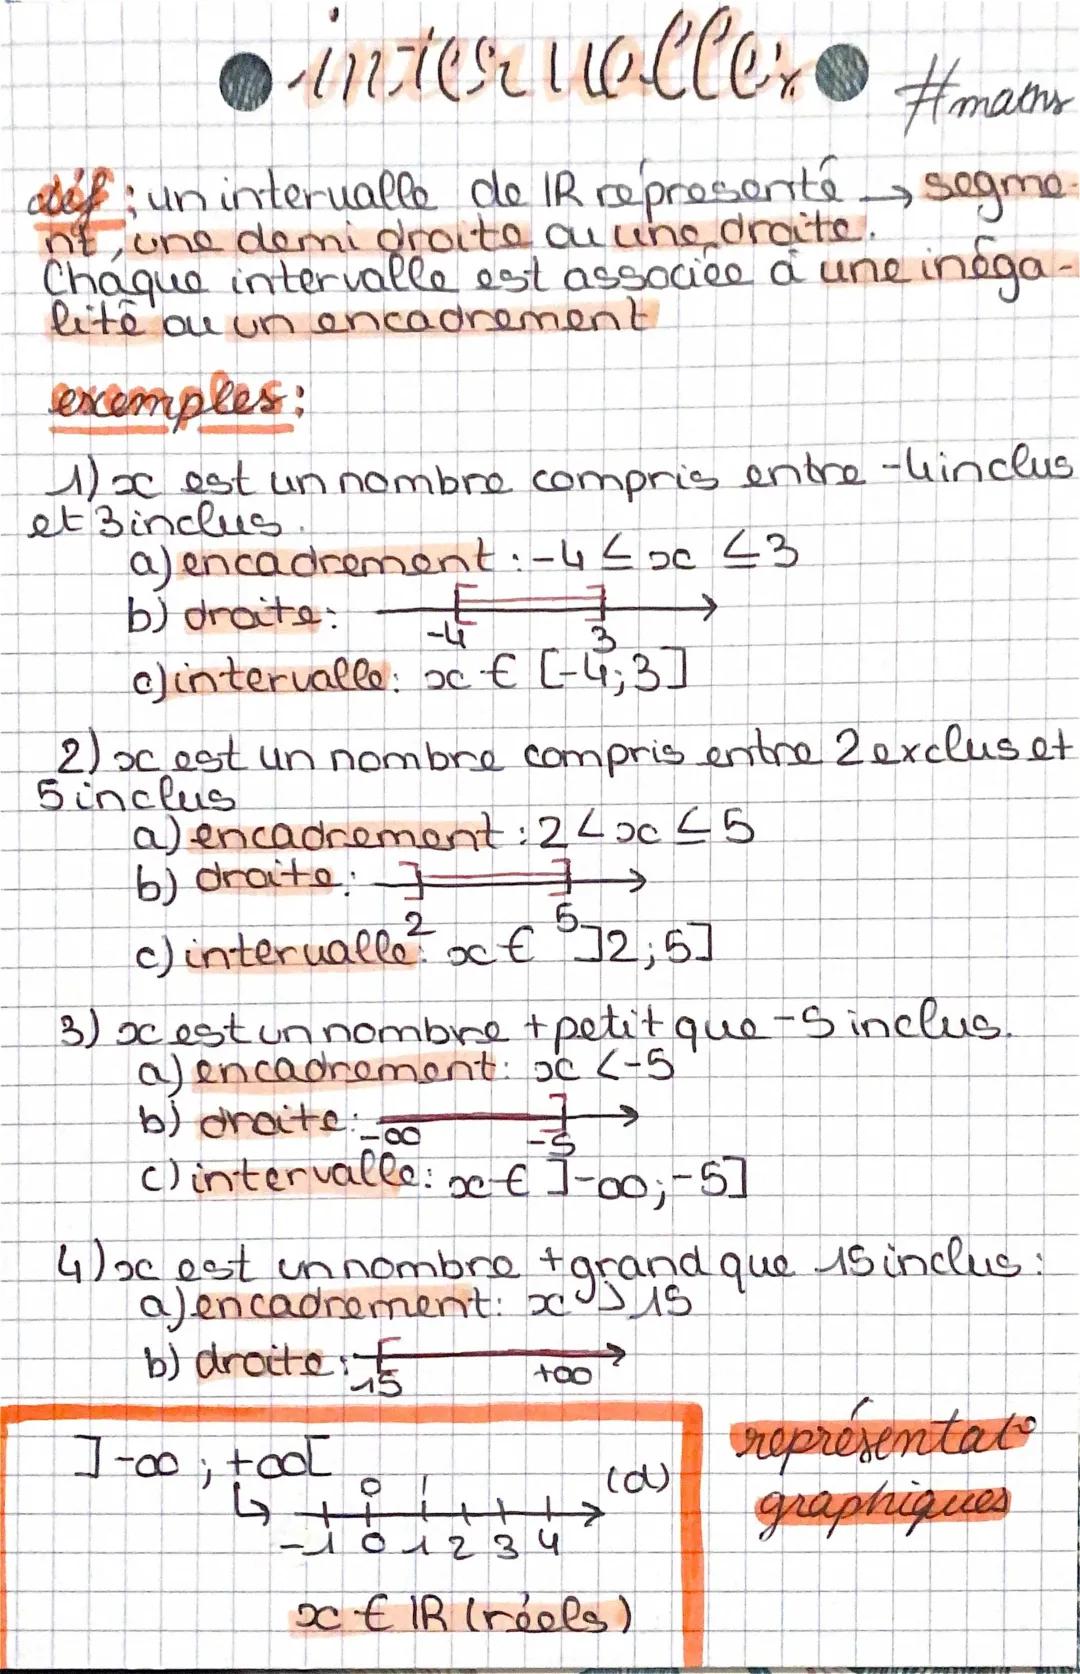 intervalles
#maths
déf : un intervalle de IR représenté → segme-
nt, une demi droite ou une droite.
Chaque intervalle est associée à une inéga-
lité ou un encadrement
exemples :
1) x est un nombre compris entre -4 inclus
et 3 inclus.
a) encadrement : -4 ≤ x ≤ 3
b) droite :
-4 3
c) intervalle : x ∈ [-4; 3]
2) x est un nombre compris entre 2 exclus et
5 inclus
a) encadrement : 2 < x ≤ 5
b) droite :
2 5
c) intervalle : x ∈ ]2; 5]
3) x est un nombre + petit que -5 inclus.
a) encadrement : x < -5
b) droite :
-∞ -5
c) intervalle : x ∈ ]-∞; -5]
4) x est un nombre + grand que 15 inclus :
a) encadrement : x > 15
b) droite :
15 +∞
]-∞ ; +∞[
↳ 0 1 (d)
-1 0 1 2 3 4
x ∈ IR (réels)
représentat°
graphiques